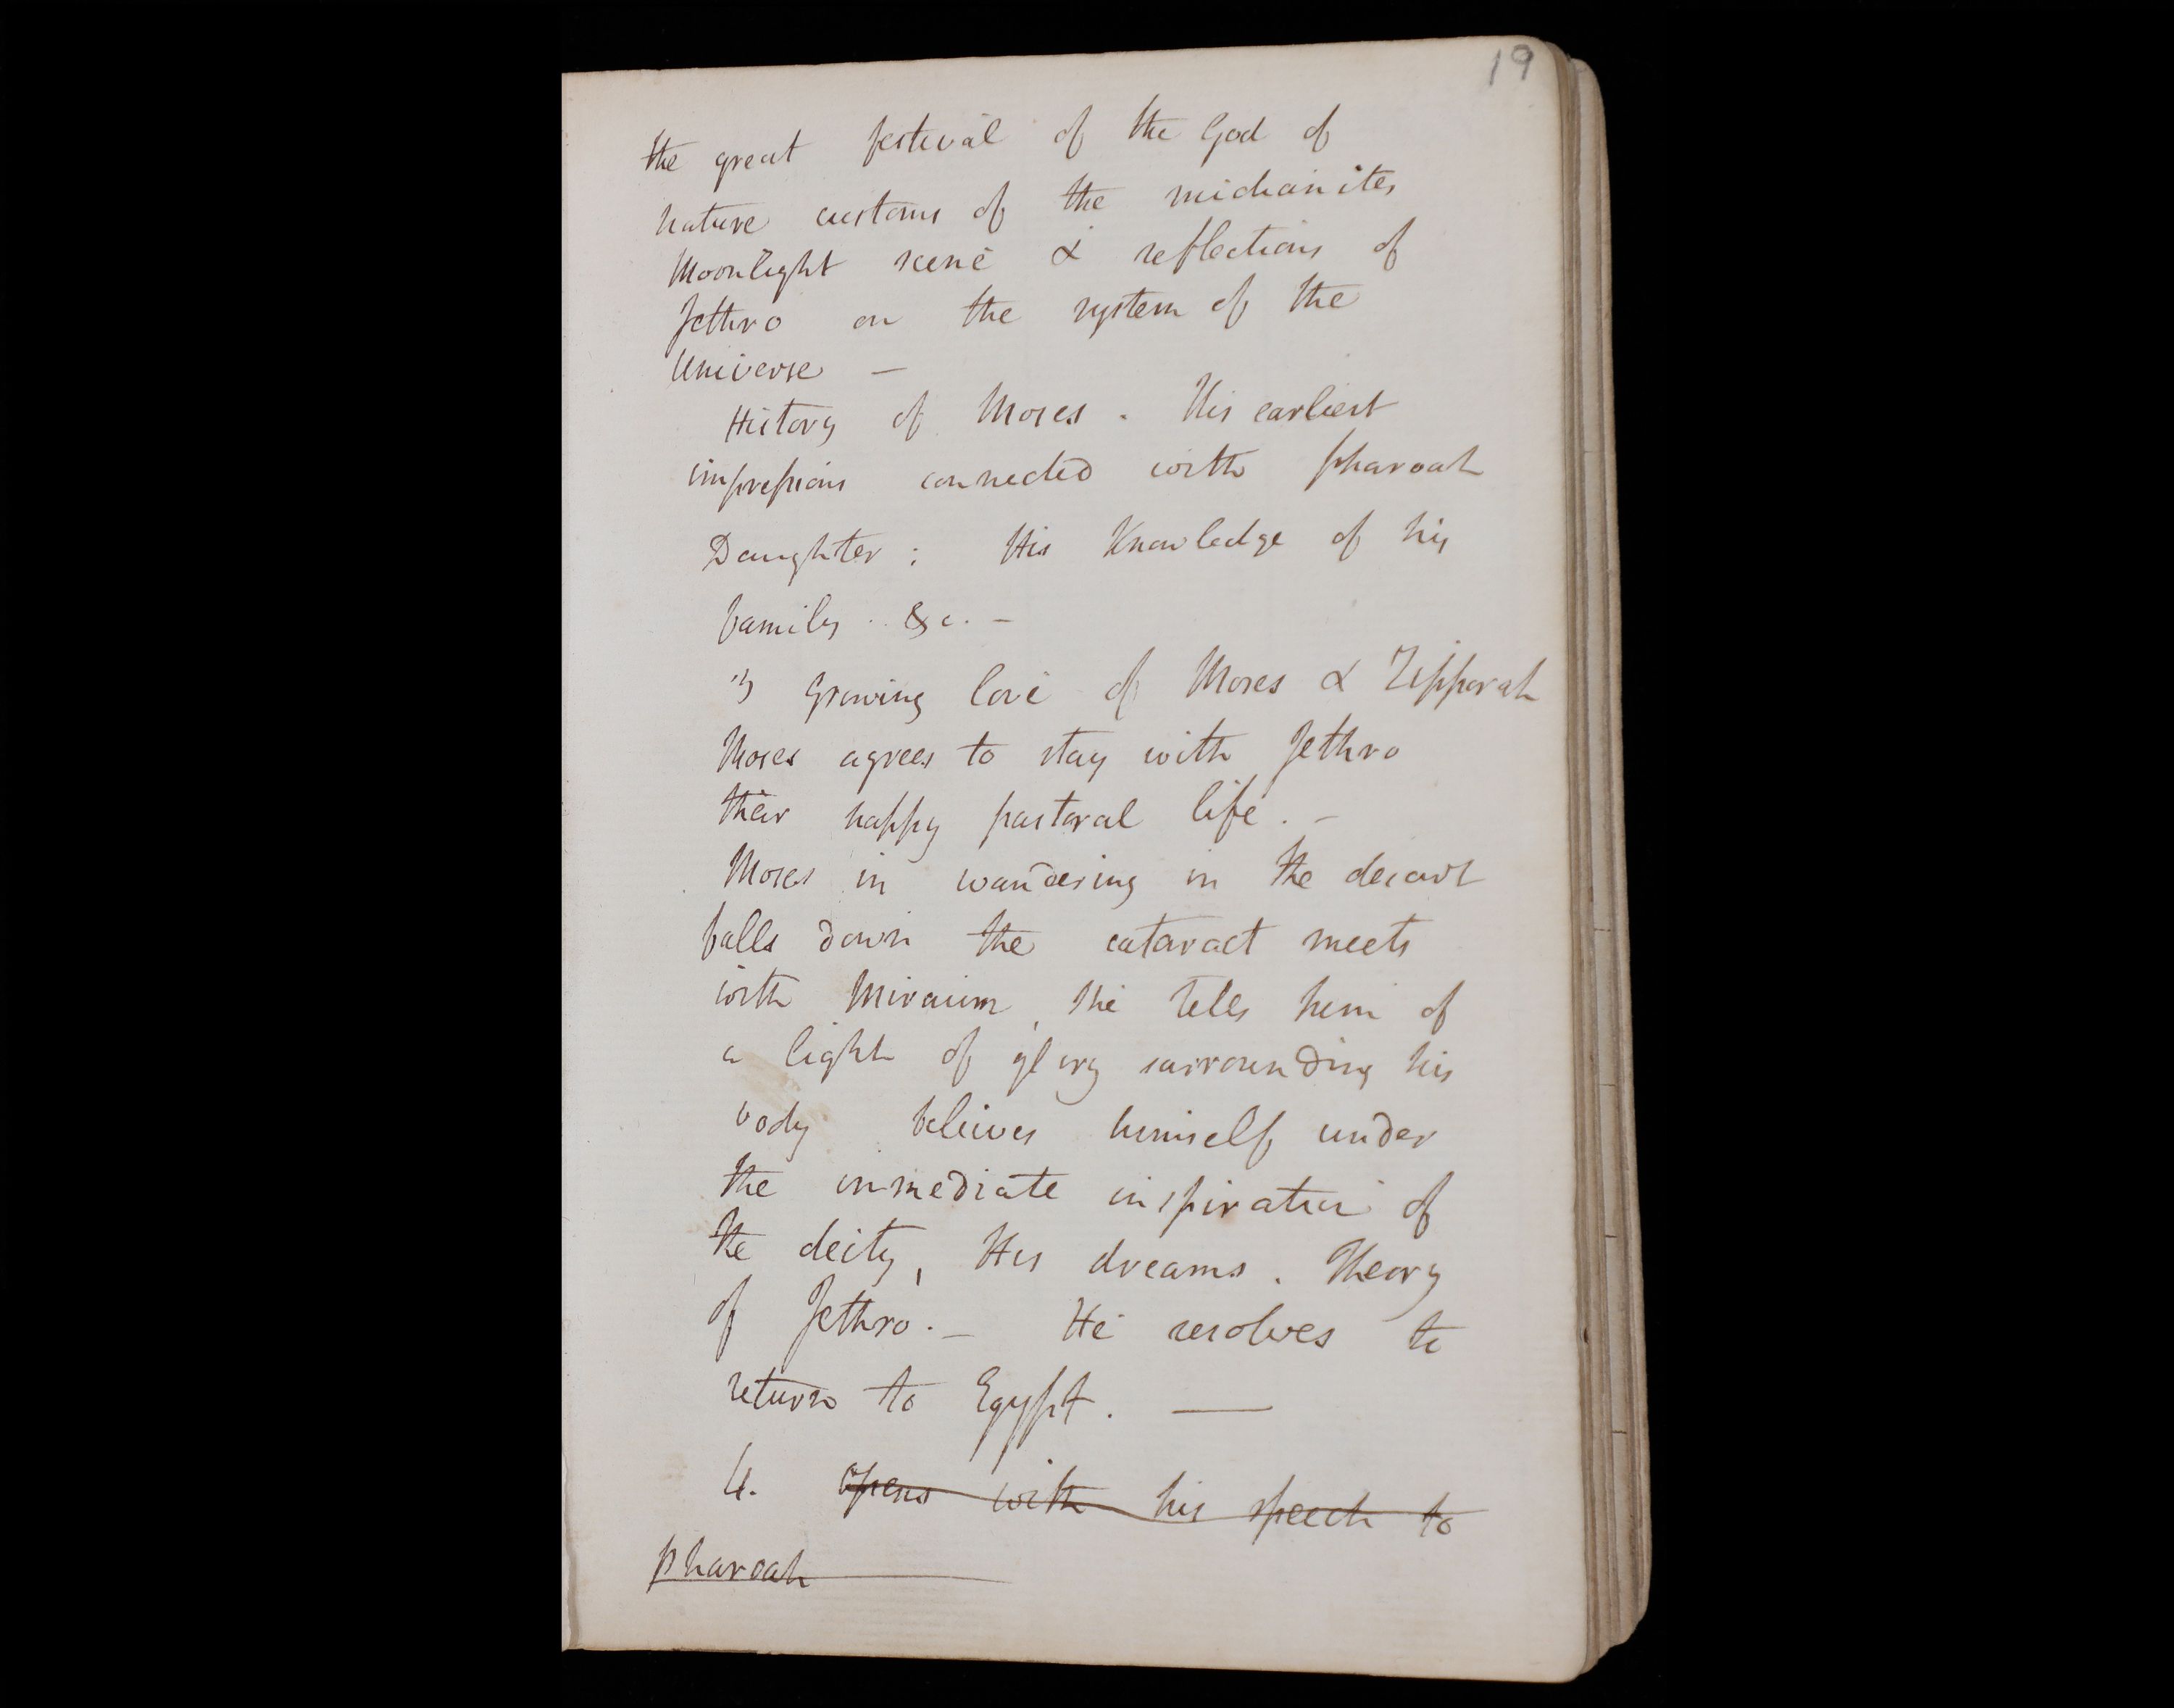 19
the great festival of the God of
nature customs of the midianites
Moonlight scene & reflections of
Jethro on the system of the
Universe —
History of Moses . His earliest
impressions connected with pharoah
Daughter ; His Knowledge of his
family .. &c. –
growing love of Moses & Zipporah
Moses agrees to stay with Jethro
their happy pastoral life . –
Moses in wandering in the desart
falls down the cataract meets
with Miraium , she tells him of
a light of glory surrounding his
body beleives himself under
the immediate inspiration of
the deity, His dreams . Theory
of Jethro. – He resolves to
return to Egypt . —
4. opens with his speech to
pharoah